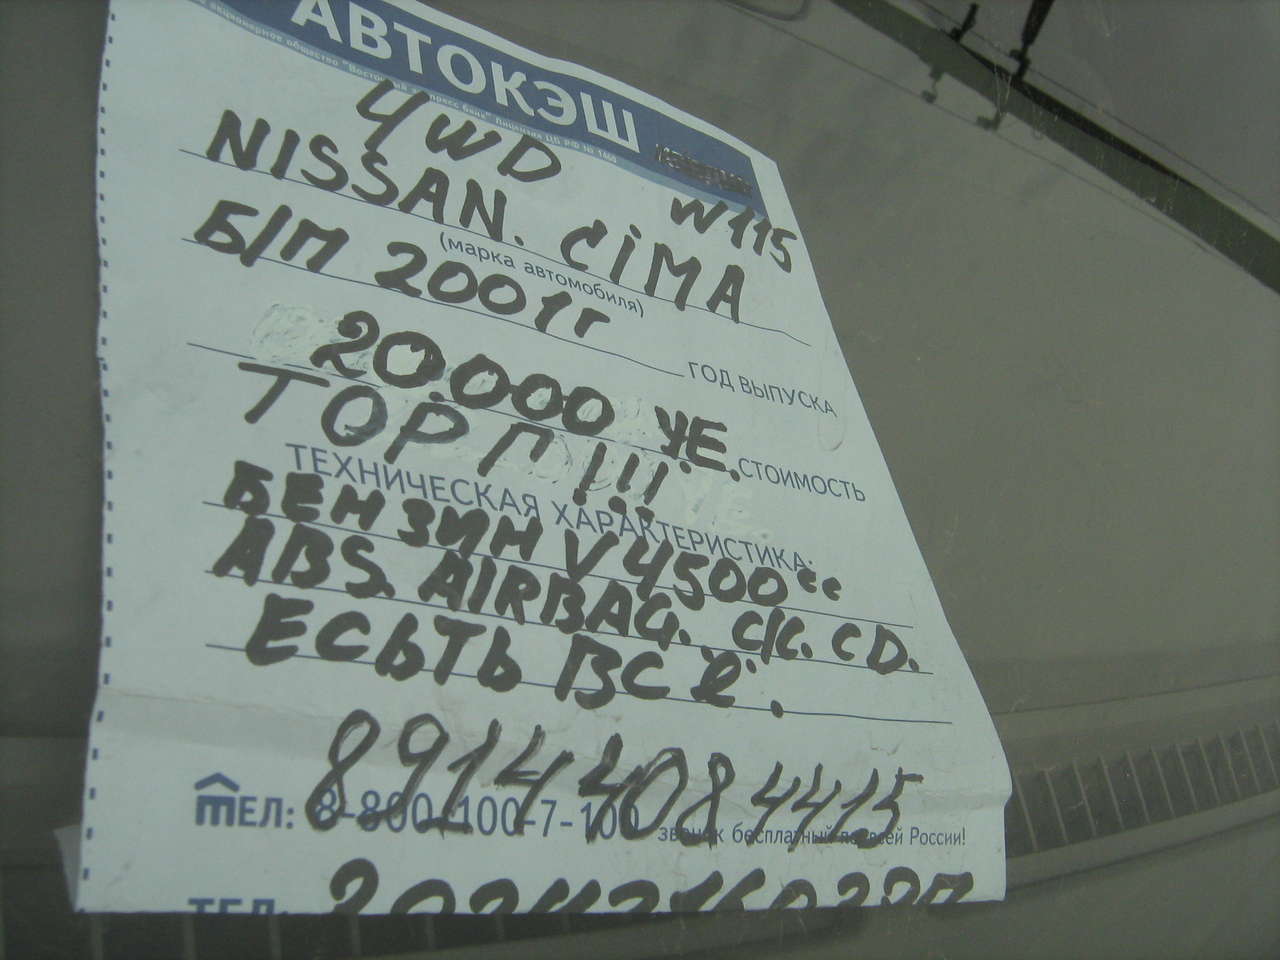 АВТОКЭШ
акционерное общество "Восточный экспресс банк" Лицензия ЦБ РФ № 1460
4WD
W115
NISSAN. CiMA
(марка автомобиля)
Б/П 2001г
ГОД ВЫПУСКА
20.000 У.Е.
СТОИМОСТЬ
ТОРГ!!!
ТЕХНИЧЕСКАЯ ХАРАКТЕРИСТИКА:
БЕНЗИН V 4500cc
ABS. AIRBAG. C/C. CD.
ЕСЬТЬ ВСЁ.
89144084415
ТЕЛ: 8-800-100-7-100 звонок бесплатный по всей России!
ТЕЛ: